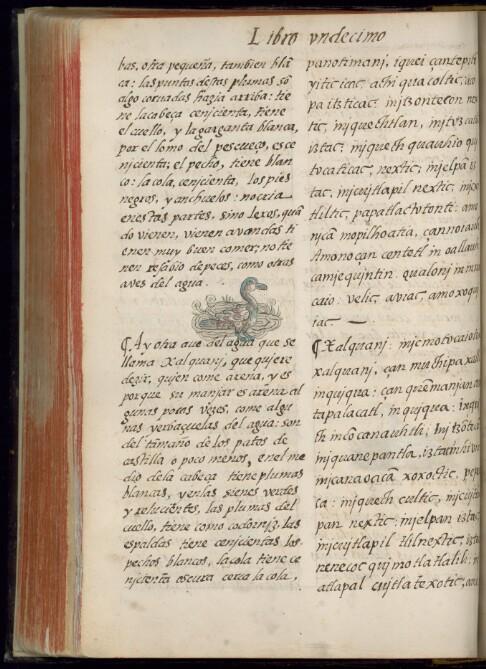 Libro vndecimo
bas, otra pequeña, tambien blã
ca: las puntas destas plumas sõ
algo coruadas hazia arriba: tie
ne la cabeça cenjcienta, tiene
el cuello, y la garganta blanca,
por el lomo del pescueço, es ce
njcienta, el pecho, tiene blan
co: la cola, cenjcienta, los pies
negros, y anchuelos: no cria
enestas partes, sino lexos, quã
do vienen, vienen avandas ti
enen muy buen comer, no tie
nen resabio de peces, como otras
aves del agua.
¶ Ay otra aue del agua que se
llama Xalquanj, que quiere
dezir, quien come arena, y es
porque su manjar es arena al
gunas pocas vezes, come algu
nas yerbaçuelas del agua: son
del tamaño de los patos de
castilla o poco menos, en el me
dio de la cabeça tiene plumas
blancas, y en las sienes verdes
y relucientes, las plumas del
cuello, tiene como codornjz, las
espaldas tiene cenjcientas los
pechos blancos, la cola tiene ce
njcienta oscura cerca la cola,
panotimanj, iquei
yitic icac, achi quacoltic,
pa itzticac. injtzonteco
tic, injquechtlan,
iztac: injquech quauhio
tocaticac, nextic, injelpã
tac, injcujtlapil nextic,
tliltic, papatlactotonti:
njcã mopilhoatia,
Amono çan centetl in oallauh
camjequintin. qualonj
caio. velic, aviac, amo xoq
iac.
¶ Xalquanj: injc motocaiotia
xalquanj, çan muchipa xal
inquiqua: çan quẽmanjan
tapalacatl, in quiqua:
in cõcanauhtli,
injquanepantla, iztac
injcanaoacã xoxoctic,
ca: injquech çultic,
pan nextic: injelpan iztac
injcujtlapil tlilnextic,
nenecoc quimotlatlalili:
atlapal cujtlatexotic,